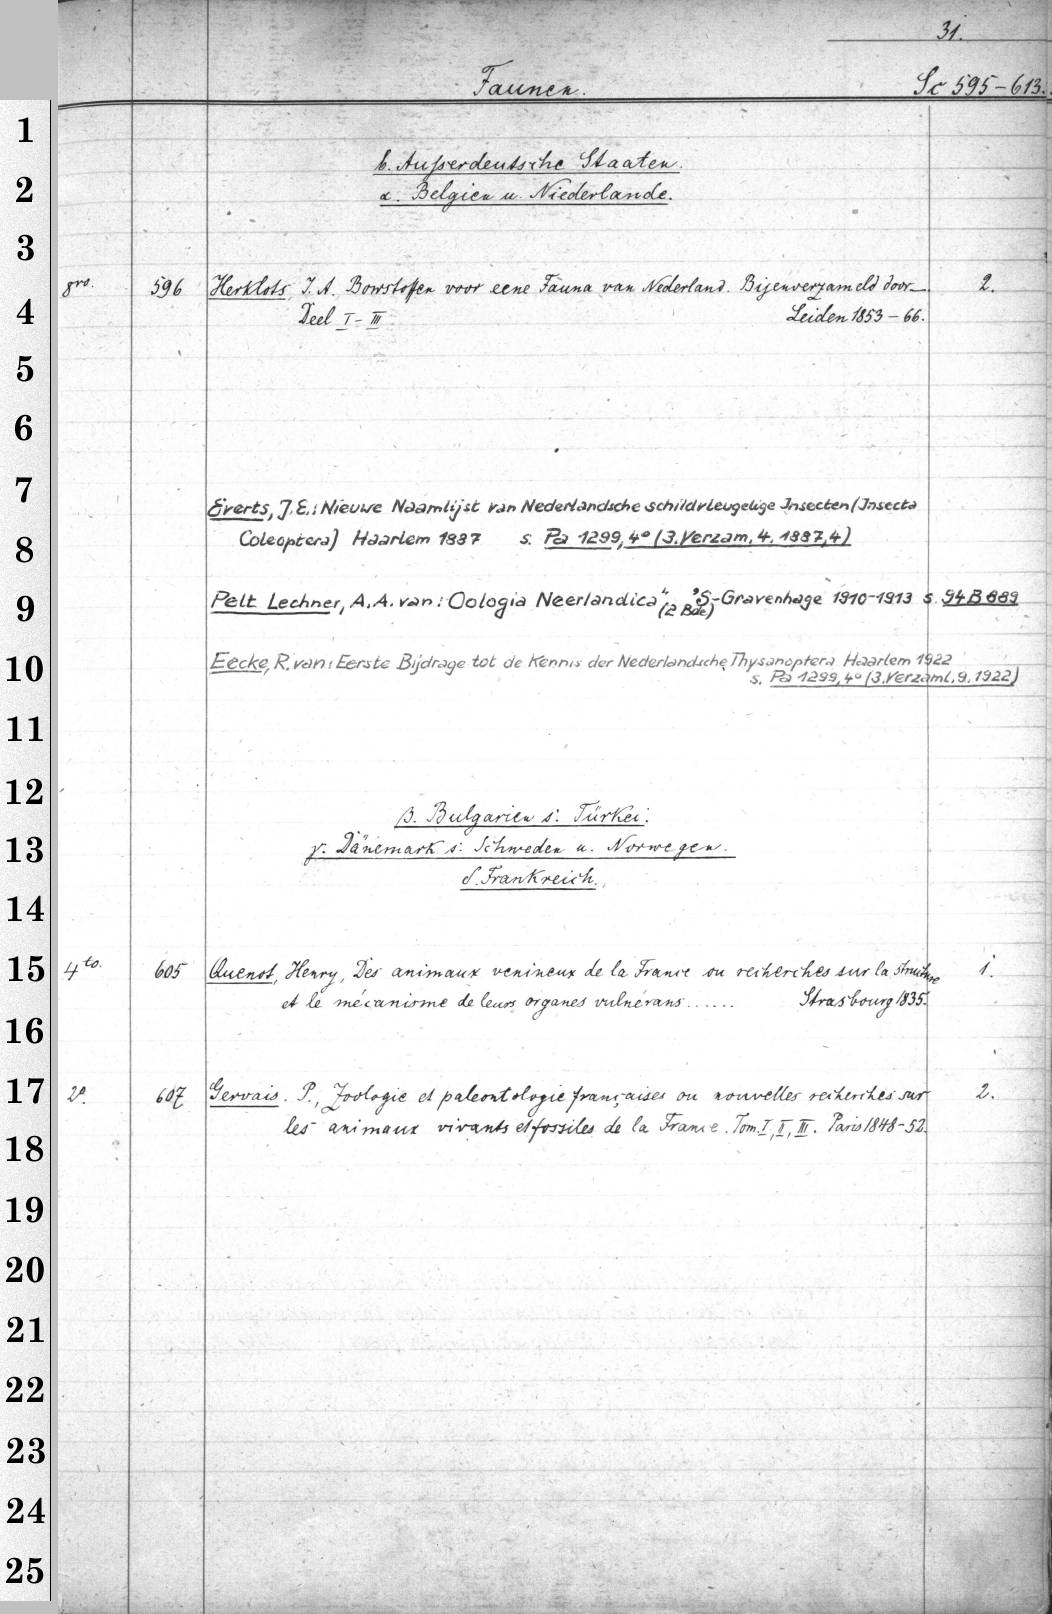 31.
Faunen. Sc 595-613.
b. Außerdeutsche Staaten.
α. Belgien u. Niederlande.
8vo. 596 Herklots, J. A. Bowstoffen voor eene Fauna van Nederland. Bijenverzameld door—. 2.
Deel I-III Leiden 1853-66.
Everts, J.E.: Nieuwe Naamlijst van Nederlandsche schildvleugelige Insecten (Insecta
Coleoptera) Haarlem 1887 s. Pa 1299, 4° (3. Verzam. 4. 1887, 4)
Pelt Lechner, A.A. van: Oologia Neerlandica", 'S-Gravenhage 1910-1913 s. 94 B 889
(2 Bde)
Eecke, R. van: Eerste Bijdrage tot de Kennis der Nederlandsche Thysanoptera Haarlem 1922
s. Pa 1299, 4° (3. Verzaml. 9. 1922)
β. Bulgarien s: Türkei.
γ. Dänemark s: Schweden u. Norwegen.
δ. Frankreich.
4to. 605 Quenot, Henry, Des animaux venineux de la France ou recherches sur la structure 1.
et le mécanisme de leurs organes vulnérans...... Strasbourg 1835.
2°. 607 Gervais. P., Zoologie et paleontologie françaises ou nouvelles recherches sur 2.
les animaux vivants et fossiles de la France. Tom. I, II, III. Paris 1848-52.
1
2
3
4
5
6
7
8
9
10
11
12
13
14
15
16
17
18
19
20
21
22
23
24
25